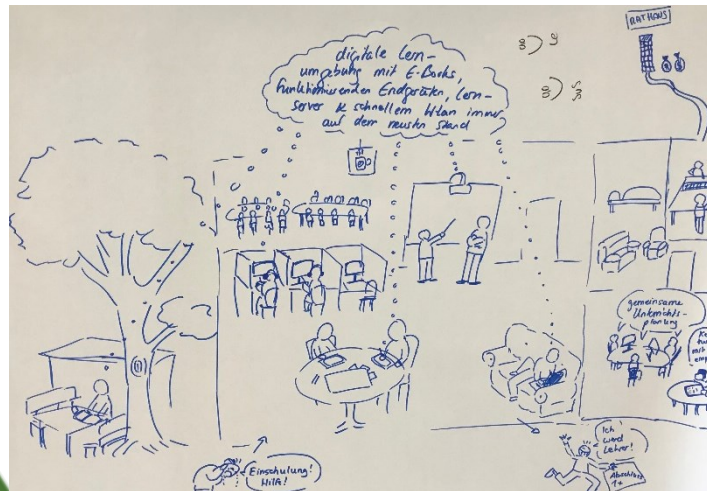 RATHAUS
digitale Lern-
umgebung mit E-Books,
funktionierenden Endgeräten, Lern-
server & schnellem Wlan immer
auf dem neusten Stand
gemeinsame
Unterrichts-
planung
mit
Einschulung!
Hilfe!
Ich
werd
Lehrer!
Abschluss
1+